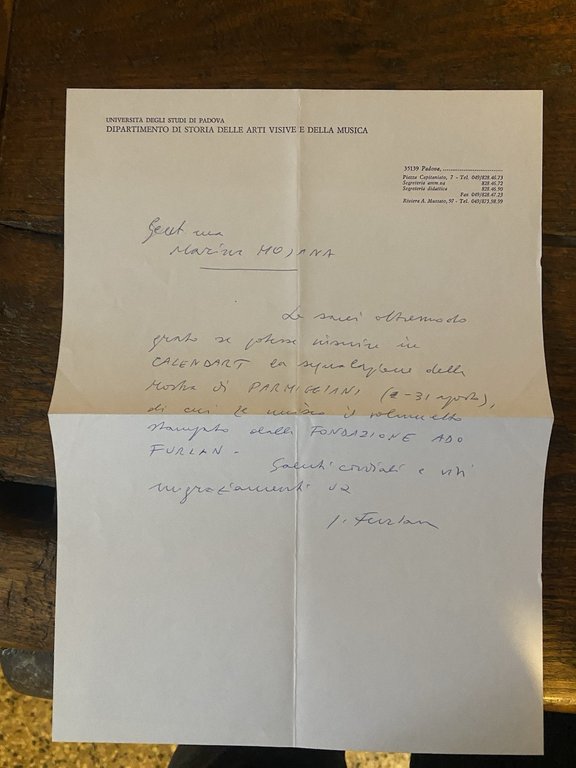 UNIVERSITÀ DEGLI STUDI DI PADOVA
DIPARTIMENTO DI STORIA DELLE ARTI VISIVE E DELLA MUSICA
35139 Padova, ..............................
Piazza Capitaniato, 7 - Tel. 049/828.46.73
Segreteria amm.va 828.46.72
Segreteria didattica 828.46.50
Fax 049/828.47.23
Riviera A. Mussato, 97 - Tel. 049/873.59.59
Gent.ma
Marina MOJANA
Le sarei oltremodo
grato se potesse inserire in
CALENDART la segnalazione della
Mostra di PARMIGGIANI (2-31 agosto),
di cui Le unisco il volumetto
stampato dalla FONDAZIONE ADO
FURLAN.
Saluti cordiali e vivi
ringraziamenti da
I. Furlan